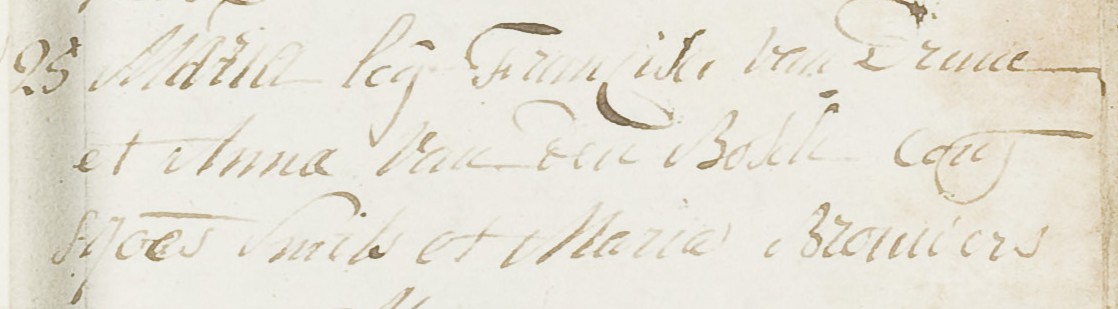 25 Maria leg Francisci van Drune
et Anna van den Bosch conj
ss Joes Smits et Maria Brouwers